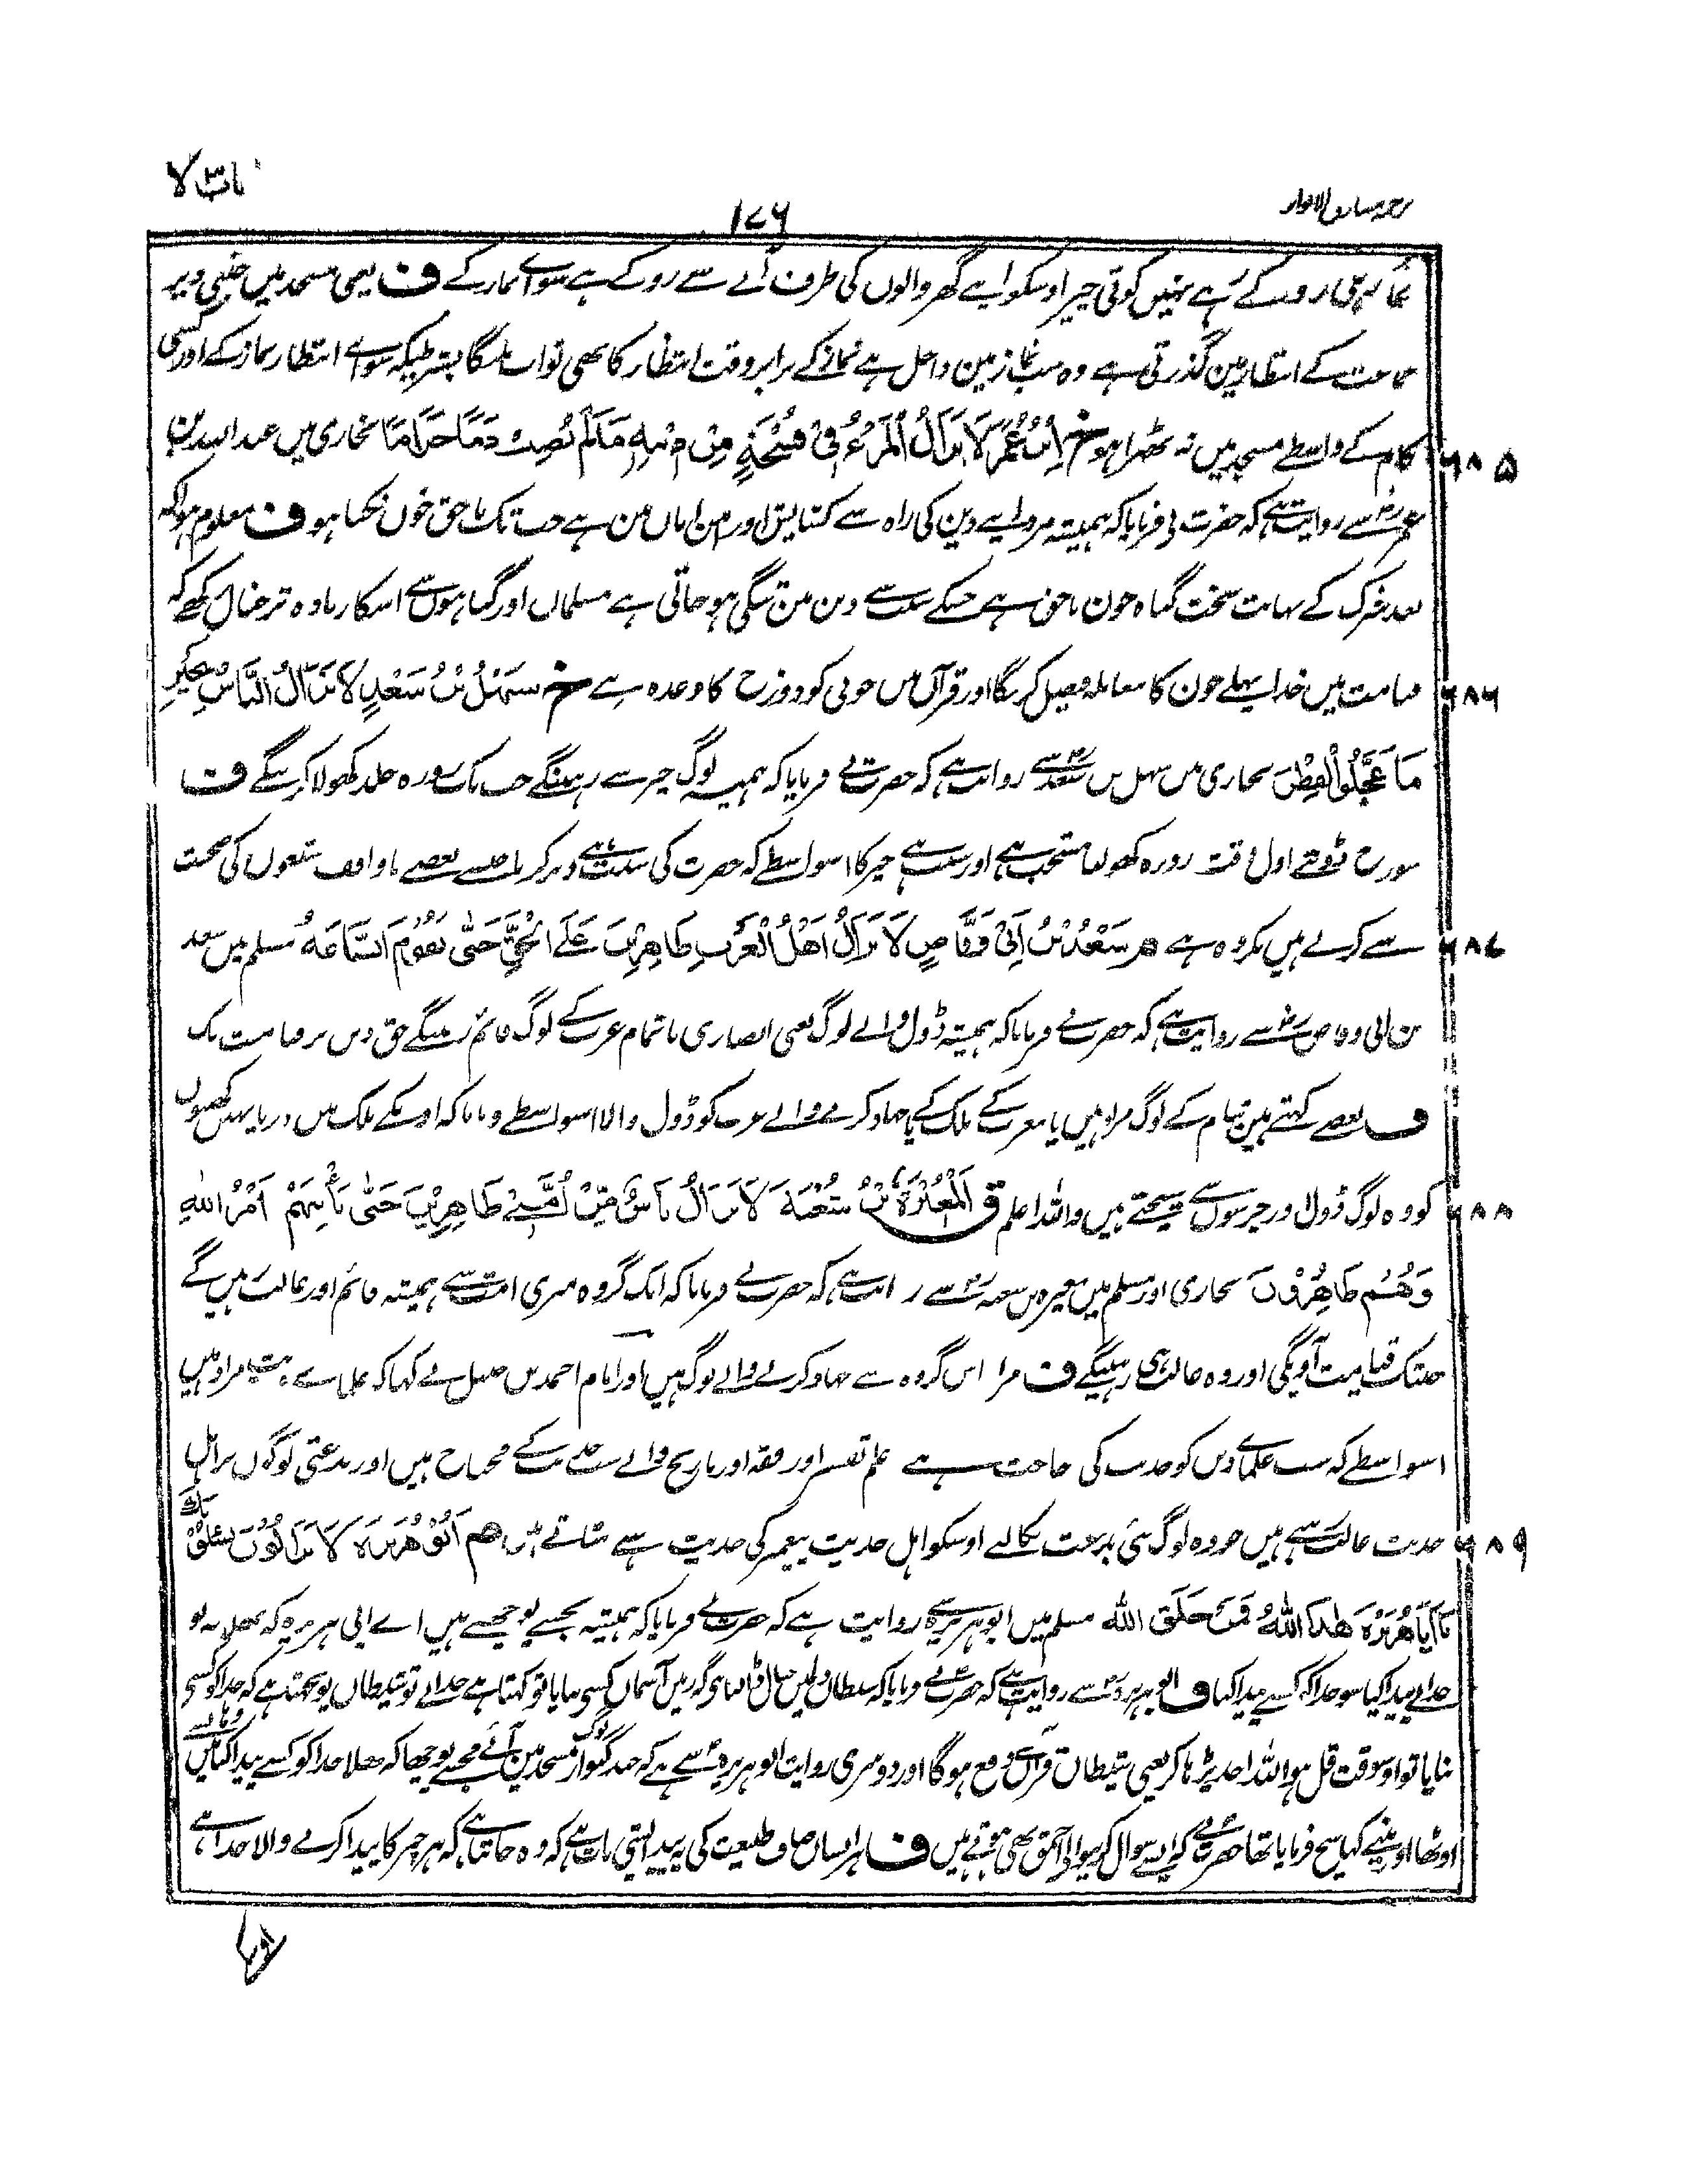 باب ۳ لا
۱۷۶
ترجمہ مشارق الانوار
نماز ہی روکے رہے نہیں کوئی چیز اوسکو اپنے گھر والوں کی طرف آنے سے روکے ہے سوائے نماز کے ف یعنی مسجد میں جتنی دیر
جماعت کے انتظار مین گذرتی ہے وہ سب نماز مین داخل ہے نماز کے برابر وقت انتظار کا بھی ثواب ملیگا بشرطیکہ سوائے انتظار نماز کے اور کسی
۶۸۵ کام کے واسطے مسجد میں نہ ٹھرا ہو خ اِبْنُ عُمَرَ لَا یَزَالُ الْمَرْءُ فِیْ فُسْحَةٍ مِنْ دِیْنِهٖ مَا لَمْ یُصِبْ دَمًا حَرَامًا بخاری میں عبد اللہ بن
عمر رض سے روایت ہے کہ حضرت نے فرمایا کہ ہمیشہ مرد اپنے دین کی راہ سے کشایش اور امن امان مین ہے جب تک ناحق خون نکیا ہو ف معلوم ہوا کہ
بعد شرک کے نہایت سخت گناہ خون ناحق ہے جسکے سبب سے دین مین تنگی ہو جاتی ہے مسلمان اور گناہوں سے اسکا زیادہ تر خیال رکھے کہ
۶۸۶ قیامت میں خدا پہلے خون کا معاملہ فیصل کریگا اور قرآن میں خونی کو دوزخ کا وعدہ ہے خ سَهْلُ بْنُ سَعْدٍ لَا یَزَالُ النَّاسُ بِخَیْرٍ
مَا عَجَّلُوا الْفِطْرَ بخاری میں سہل بن سعد رض سے روایت ہے کہ حضرت نے فرمایا کہ ہمیشہ لوگ خیر سے رہینگے جب تک روزہ جلد کھولا کرینگے ف
سورج ڈوبتے اول وقت روزہ کھولنا مستحب ہے اور سبب ہے خیر کا اسواسطے کہ حضرت کی سنت ہے دیر کرنا جیسے بعضے ناواقف شیعوں کی صحبت
۶۸۷ سے کرتے ہیں مکروہ ہے م سَعْدُ بْنُ اَبِیْ وَقَّاصٍ لَا یَزَالُ اَهْلُ الْغَرْبِ ظَاهِرِیْنَ عَلَی الْحَقِّ حَتّٰی تَقُوْمَ السَّاعَةُ مسلم میں سعد
بن ابی وقاص رض سے روایت ہے کہ حضرت نے فرمایا کہ ہمیشہ ڈول والے لوگ یعنی انصاری یا تمام عرب کے لوگ قائم رہینگے حق دین پر قیامت تک
ف بعضے کہتے ہین شام کے لوگ مراد ہیں یا مغرب کے ملک کے یا جہاد کرنے والے عرب کو ڈول والا اسواسطے فرمایا کہ اونکے ملک میں دریا نہیں کھیتوں
۶۸۸ کو وہ لوگ ڈول اور چرسوں سے سینچتے ہیں واللہ اعلم ق اَلْمُغِیْرَةُ بْنُ شُعْبَةَ لَا یَزَالُ نَاسٌ مِّنْ اُمَّتِیْ ظَاهِرِیْنَ حَتّٰی یَأْتِیَهُمْ اَمْرُ اللّٰهِ
وَهُمْ ظَاهِرُوْنَ بخاری اور مسلم میں مغیرہ بن شعبہ رض سے روایت ہے کہ حضرت نے فرمایا کہ ایک گروہ میری امت سے ہمیشہ قائم اور غالب رہیں گے
جبتک قیامت آویگی اور وہ غالب ہی رہینگے ف مراد اس گروہ سے جہاد کرنے والے لوگ ہیں اور امام احمد بن حنبل نے کہا کہ علمائے حدیث مراد ہیں
اسواسطے کہ سب علماؤں کو حدیث کی حاجت ہے علم تفسیر اور فقہ اور تاریخ والے سب حدیث کے محتاج ہیں اور بدعتی لوگوں پر اہل
۶۸۹ حدیث غالب رہتے ہیں جو وہ لوگ نئی بدعت نکالتے اوسکو اہل حدیث پیغمبر کی حدیث سے مٹاتے ہیں م اَبُوْ هُرَیْرَةَ لَا یَزَالُوْنَ یَسْئَلُوْنَكَ
یَا اَبَا هُرَیْرَةَ هٰذَا اللّٰهُ فَمَنْ خَلَقَ اللّٰهَ مسلم میں ابو ہریرہ سے روایت ہے کہ حضرت نے فرمایا کہ ہمیشہ تجھسے پوچھتے ہیں اے ابی ہریرہ کہ بھلا یہ تو
خدا نے پیدا کیا سو خدا کو کسنے پیدا کیا ف ابو ہریرہ رض سے روایت ہے کہ حضرت نے فرمایا کہ شیطان دلمیں خیال ڈالتا ہی کہ زمین آسمان کسنے بنایا تو کہتا ہے خدا نے تو شیطان پوچھتا ہے کہ خدا کو کسنے
بنایا تو اوسوقت قل ہو اللہ احد پڑہا کر یعنی شیطان قرآن سے دفع ہوگا اور دوسری روایت ابو ہریرہ رض سے ہے کہ چند گنوار لوگ مسجد مین آئے مجھسے پوچھا کہ بھلا خدا کو کسنے پیدا کیا میں وہاں سے
اوٹھا اور مینے کہا سچ فرمایا تھا حضرت نے کہ ایسے سوال کرنیوالے احمق بھی ہوتے ہیں ف ہر انسان صاف طبیعت کی یہ پیدایشی بات ہے کہ وہ جانتا ہے کہ ہر چیز کا پیدا کرنے والا خدا ہے